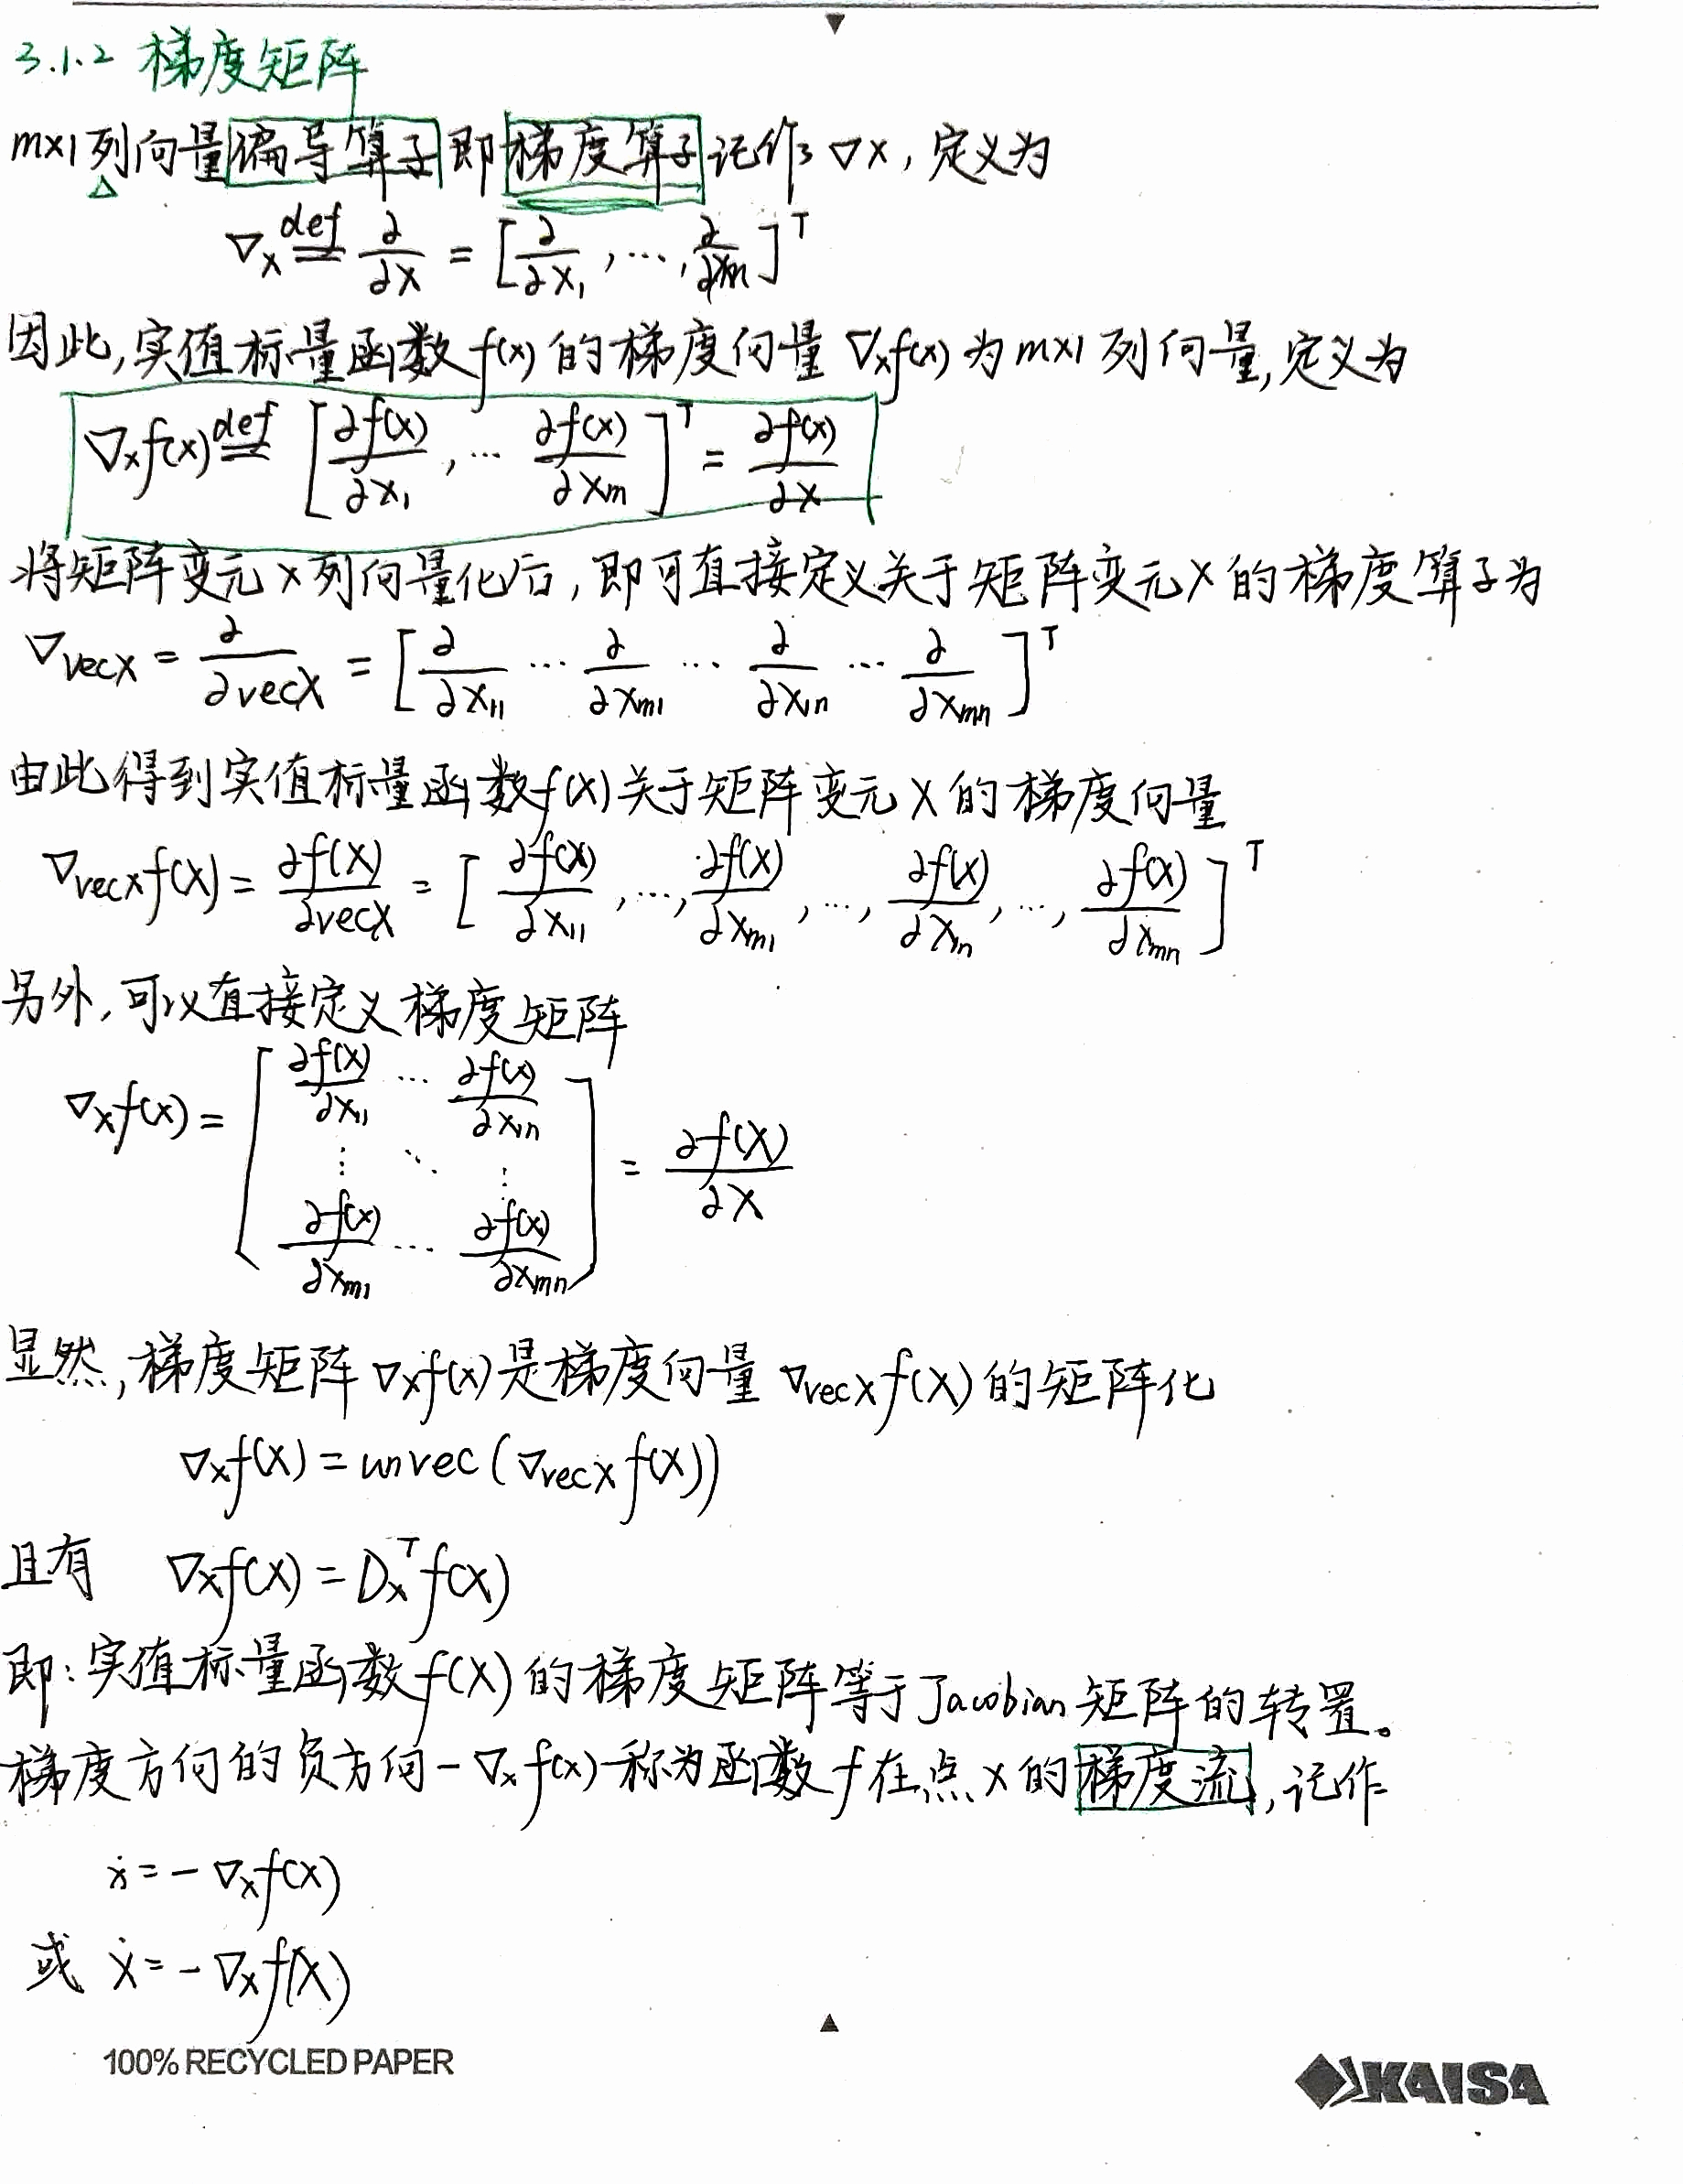 3.1.2 梯度矩阵
m×1列向量偏导算子即梯度算子记作∇x, 定义为
∇x def= ∂/∂x = [∂/∂x₁, ⋯, ∂/∂xm]ᵀ
因此,实值标量函数f(x)的梯度向量∇xf(x)为m×1列向量,定义为
∇xf(x) def= [∂f(x)/∂x₁, ⋯ ∂f(x)/∂xm]ᵀ = ∂f(x)/∂x
将矩阵变元X列向量化后, 即可直接定义关于矩阵变元X的梯度算子为
∇vecX = ∂/∂vecX = [∂/∂x₁₁ ⋯ ∂/∂xm1 ⋯ ∂/∂x1n ⋯ ∂/∂xmn]ᵀ
由此得到实值标量函数f(X)关于矩阵变元X的梯度向量
∇vecXf(X) = ∂f(X)/∂vecX = [∂f(X)/∂x₁₁, ⋯, ∂f(X)/∂xm1, ⋯, ∂f(X)/∂x1n, ⋯, ∂f(X)/∂xmn]ᵀ
另外,可以直接定义梯度矩阵
∇xf(x) = [∂f(X)/∂x₁₁ ⋯ ∂f(X)/∂x1n
⋮ ⋱ ⋮
∂f(X)/∂xm1 ⋯ ∂f(X)/∂xmn] = ∂f(X)/∂X
显然,梯度矩阵∇xf(x)是梯度向量∇vecXf(X)的矩阵化
∇xf(X) = unvec(∇vecXf(X))
且有 ∇xf(X) = Dxᵀf(X)
即:实值标量函数f(X)的梯度矩阵等于Jacobian矩阵的转置。
梯度方向的负方向-∇xf(x)称为函数f在点x的梯度流,记作
ẋ = -∇xf(x)
或 Ẋ = -∇xf(X)
100% RECYCLED PAPER
KAISA